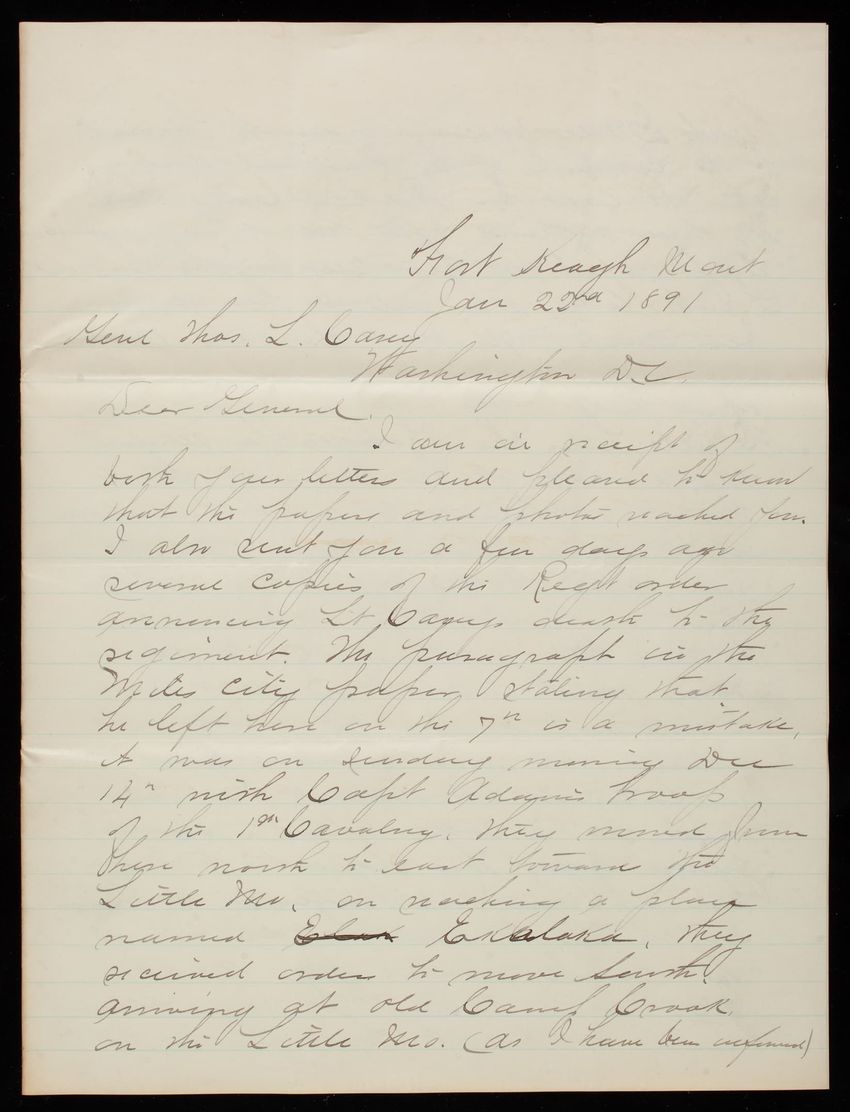 Fort Keogh Mont
Jan 22nd 1891
Genl Thos. L. Casey
Washington D.C.
Dear General.
I am in receipt of
both your letters and pleased to know
that the papers and photos reached you.
I also sent you a few days ago
several copies of the Regt order
announcing Lt Caseys death to the
regiment. The paragraph in the
Miles City paper stating that
he left here on the 7th is a mistake,
it was on Sunday morning Dec
14th with Capt Adams troop
of the 1st Cavalry. they moved from
here north to east toward the
Little Mo. on reaching a place
named Ekalaka, they
received orders to move South.
arriving at old Camp Crook
on the Little Mo. (as I have been informed)